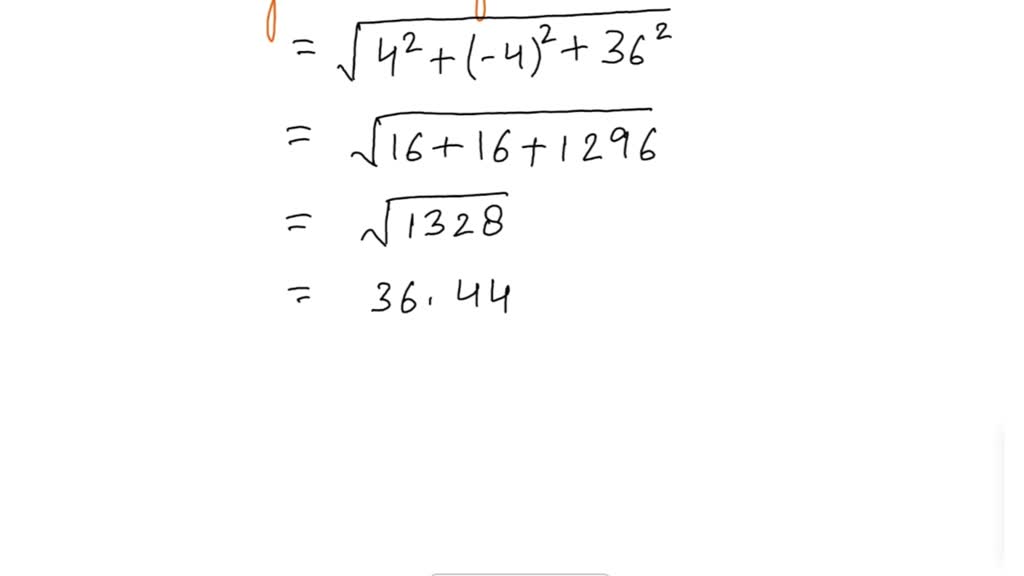 = √4² + (-4)² + 36²
= √16 + 16 + 1296
= √1328
= 36.44